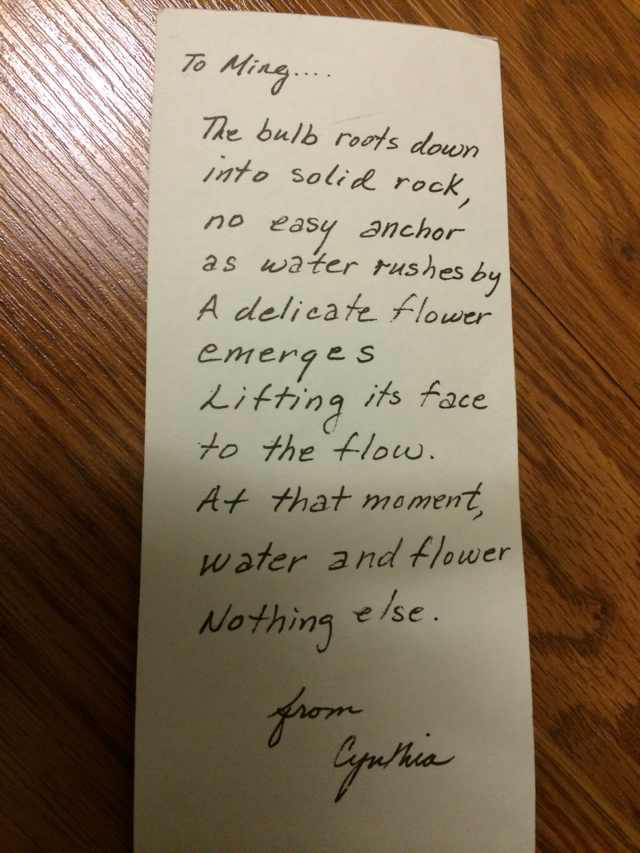 To Ming....
The bulb roots down
into solid rock,
no easy anchor
as water rushes by
A delicate flower
emerges
Lifting its face
to the flow.
At that moment,
water and flower
Nothing else.
from
Cynthia